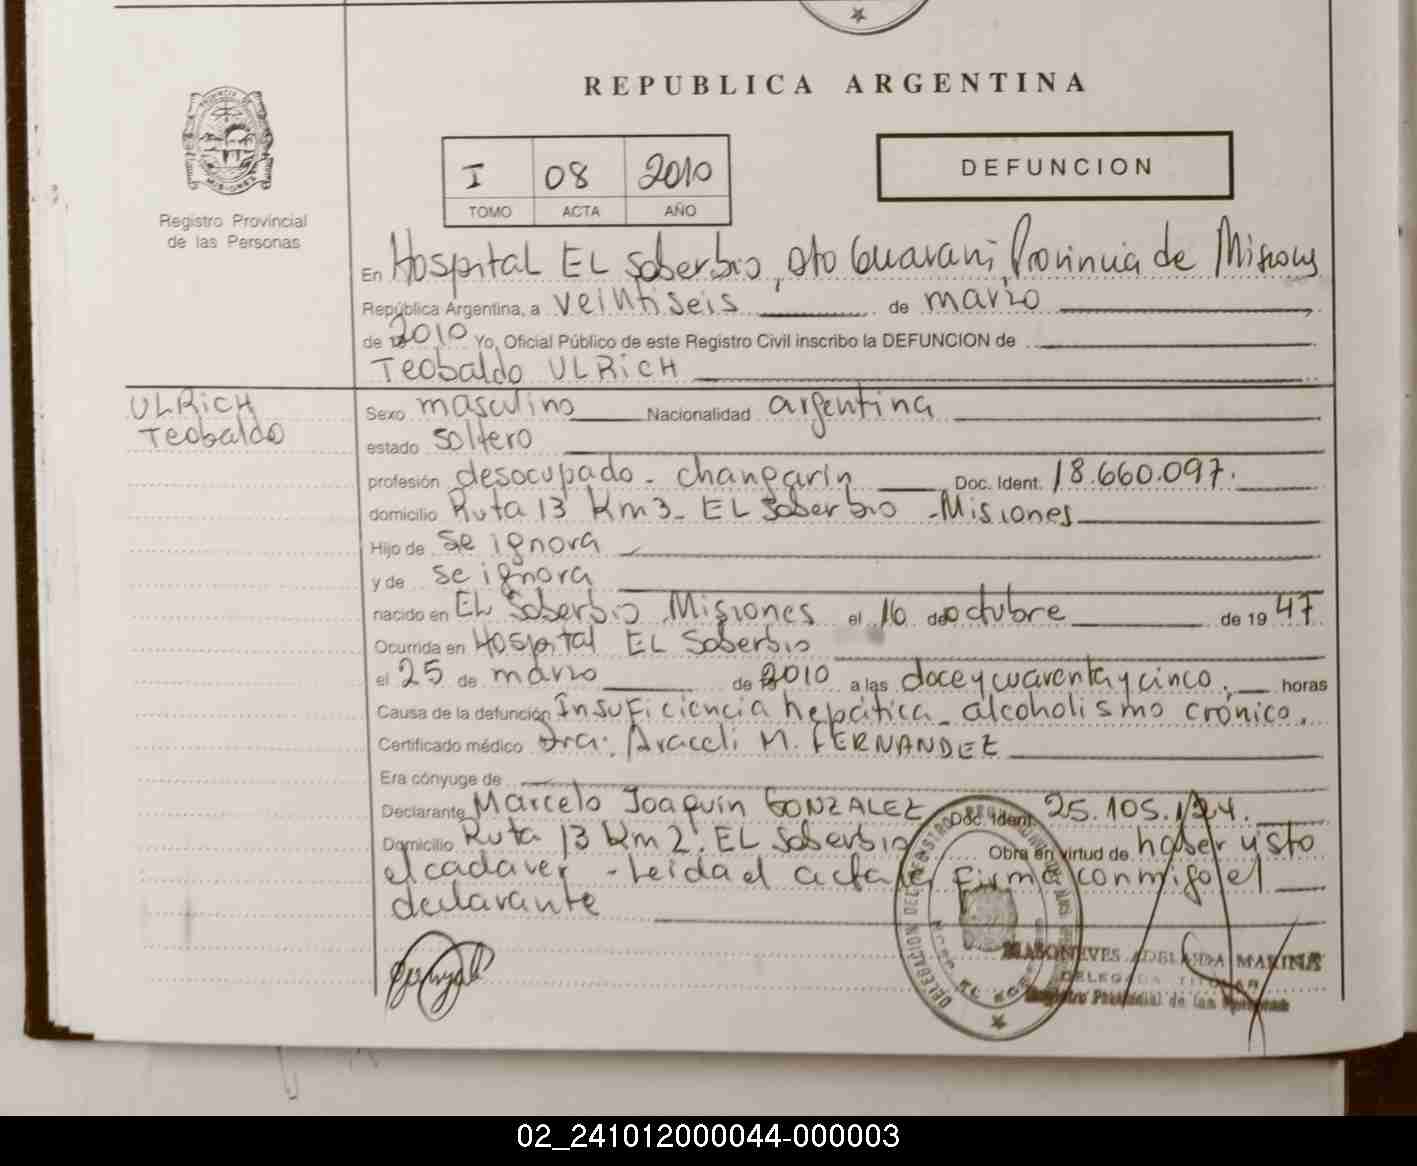 REPUBLICA ARGENTINA
I 08 2010
TOMO ACTA AÑO
DEFUNCION
Registro Provincial
de las Personas
En Hospital EL Soberbio, Dto Guarani, Provincia de Misiones
República Argentina, a veintiseis de marzo
de 2010 Yo, Oficial Público de este Registro Civil inscribo la DEFUNCION de
Teobaldo ULRICH
ULRICH
Teobaldo
Sexo masculino Nacionalidad argentina
estado soltero
profesión desocupado - changarin Doc. Ident. 18.660.097.
domicilio Ruta 13 Km 3 - EL Soberbio - Misiones
Hijo de se ignora
y de se ignora
nacido en EL Soberbio Misiones el 16 de octubre de 1947
Ocurrida en Hospital EL Soberbio
el 25 de marzo de 2010 a las doce y cuarenta y cinco, horas
Causa de la defunción Insuficiencia hepática - alcoholismo crónico.
Certificado médico Dra. Araceli M. FERNANDEZ
Era cónyuge de
Declarante Marcelo Joaquín GONZALEZ Doc. Ident. 25.105.124.
Domicilio Ruta 13 Km 2. EL Soberbio Obra en virtud de haber visto
el cadaver - Leida el acta la firma conmigo el
declarante
ADELAIDA MARINA
DELEGADA TITULAR
Registro Provincial de las Personas
02_241012000044-000003